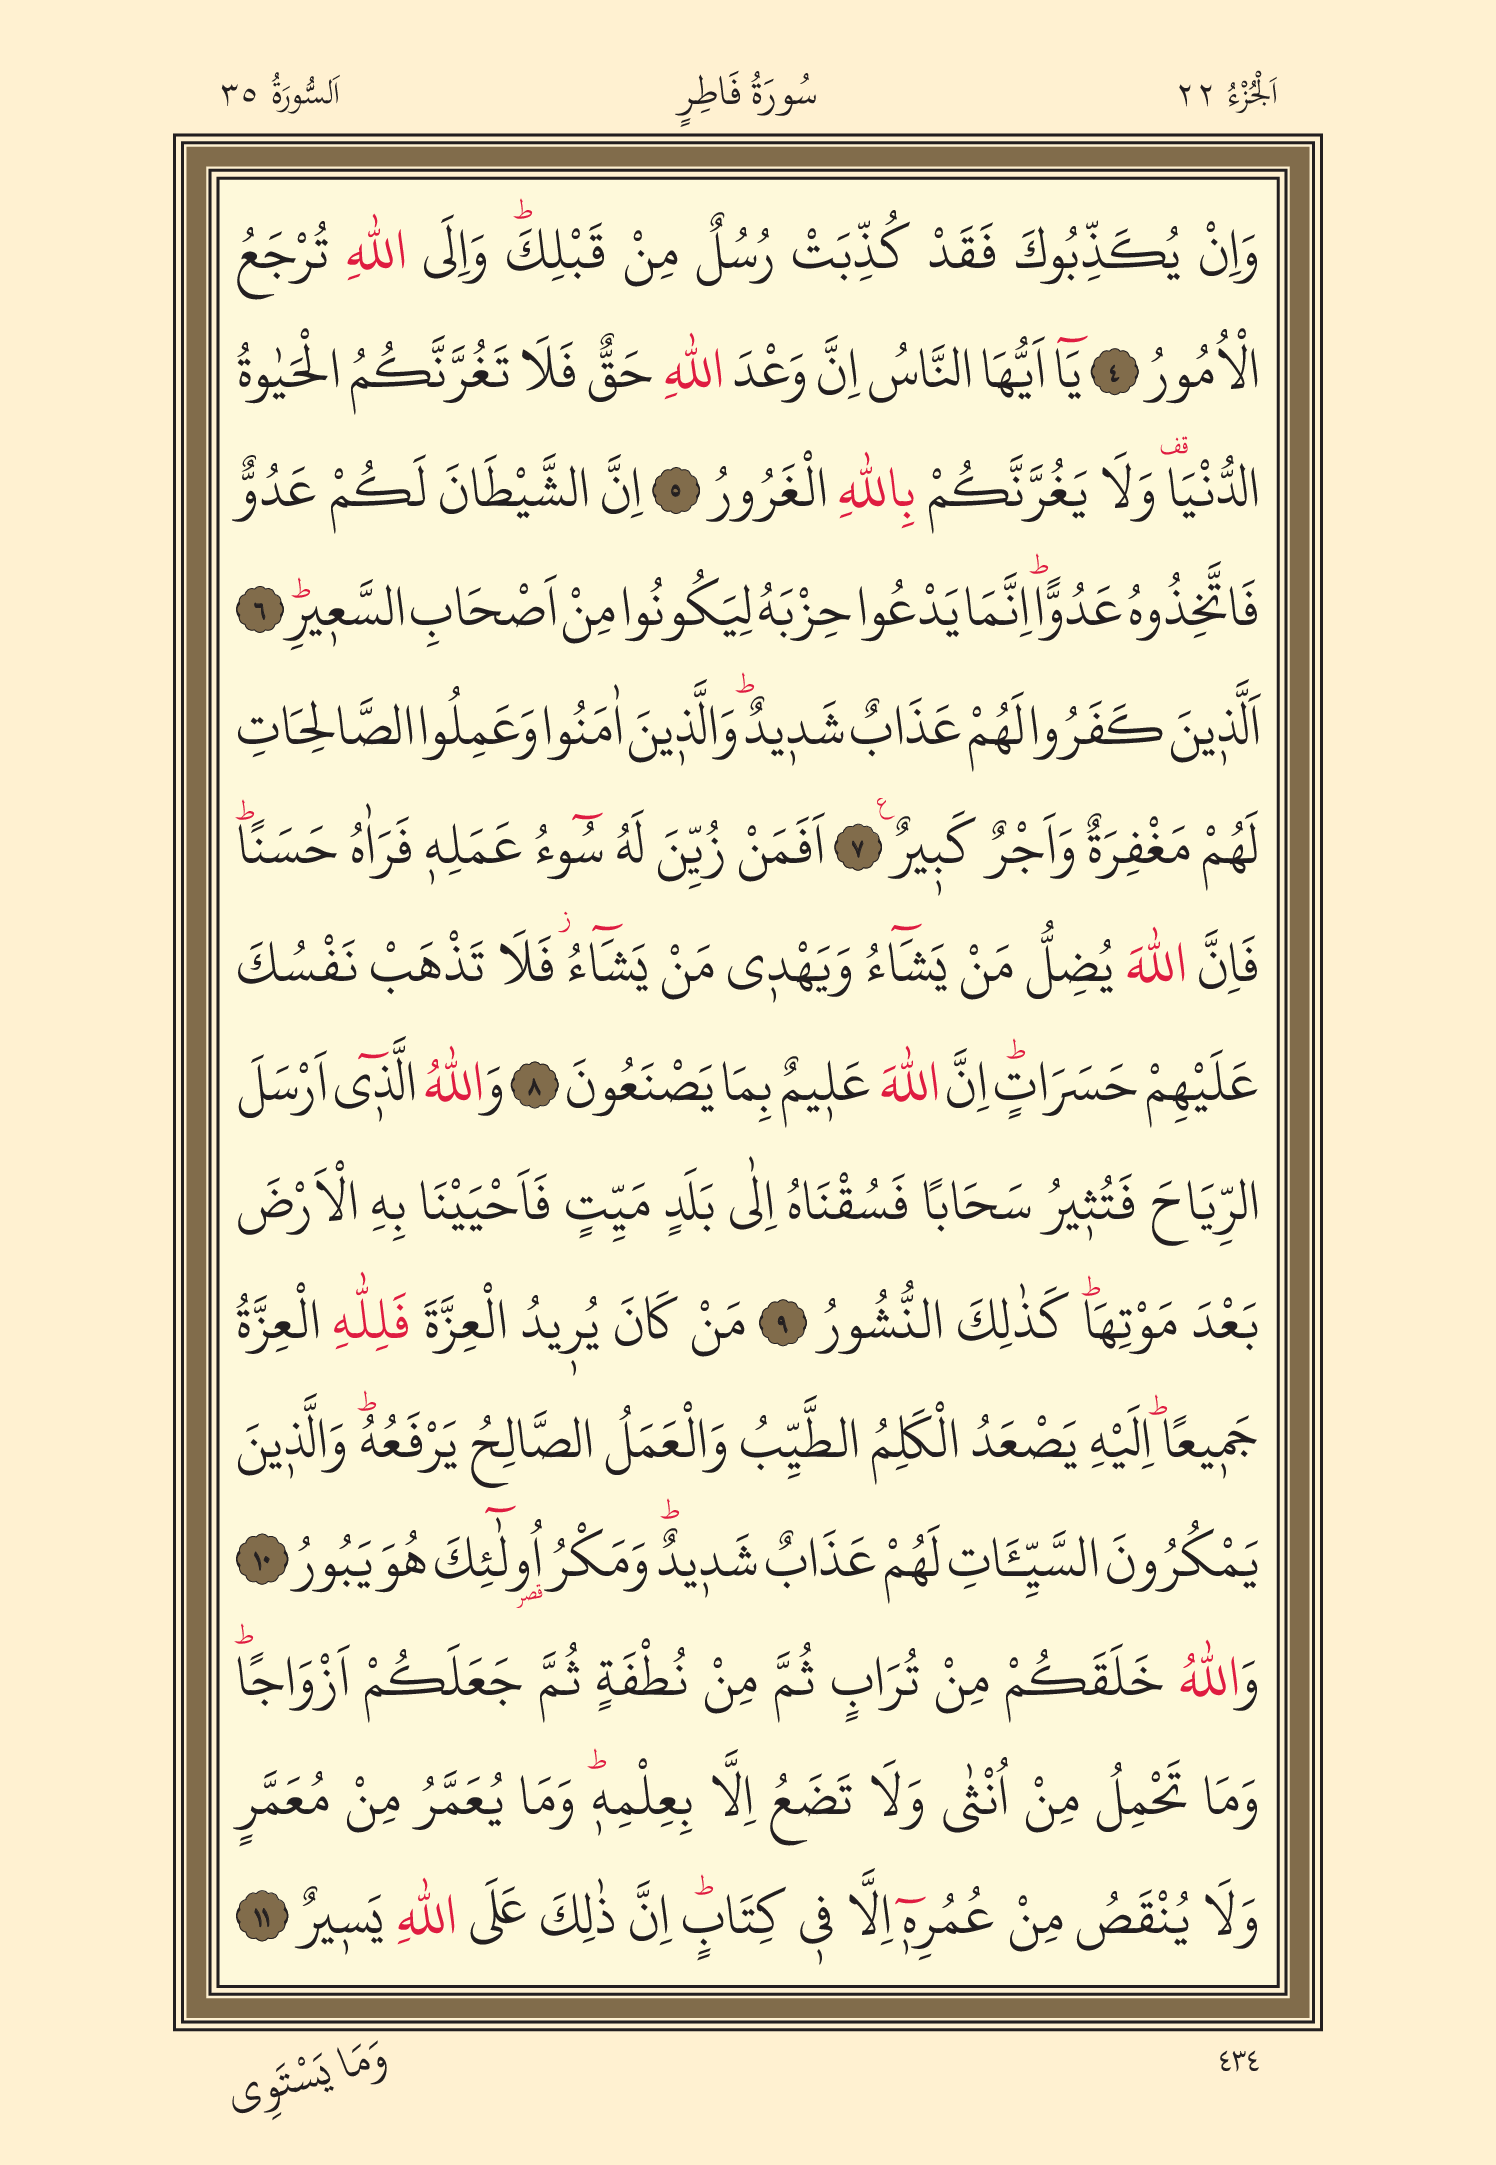 اَلْجُزْءُ ٢٢
سُورَةُ فَاطِرٍ
اَلسُّورَةُ ٣٥
وَاِنْ يُكَذِّبُوكَ فَقَدْ كُذِّبَتْ رُسُلٌ مِنْ قَبْلِكَۜ وَاِلَى اللّٰهِ تُرْجَعُ
الْاُمُورُ ﴿٤﴾ يَٓا اَيُّهَا النَّاسُ اِنَّ وَعْدَ اللّٰهِ حَقٌّ فَلَا تَغُرَّنَّكُمُ الْحَيٰوةُ
الدُّنْيَا۠ قف وَلَا يَغُرَّنَّكُمْ بِاللّٰهِ الْغَرُورُ ﴿٥﴾ اِنَّ الشَّيْطَانَ لَكُمْ عَدُوٌّ
فَاتَّخِذُوهُ عَدُوًّاۜ اِنَّمَا يَدْعُوا حِزْبَهُ لِيَكُونُوا مِنْ اَصْحَابِ السَّعٖيرِۜ ﴿٦﴾
اَلَّذٖينَ كَفَرُوا لَهُمْ عَذَابٌ شَدٖيدٌۜ وَالَّذٖينَ اٰمَنُوا وَعَمِلُوا الصَّالِحَاتِ
لَهُمْ مَغْفِرَةٌ وَاَجْرٌ كَبٖيرٌ ع ﴿٧﴾ اَفَمَنْ زُيِّنَ لَهُ سُٓوءُ عَمَلِهٖ فَرَاٰهُ حَسَنًاۜ
فَاِنَّ اللّٰهَ يُضِلُّ مَنْ يَشَٓاءُ وَيَهْدٖى مَنْ يَشَٓاءُ ز فَلَا تَذْهَبْ نَفْسُكَ
عَلَيْهِمْ حَسَرَاتٍۜ اِنَّ اللّٰهَ عَلٖيمٌ بِمَا يَصْنَعُونَ ﴿٨﴾ وَاللّٰهُ الَّذٖٓى اَرْسَلَ
الرِّيَاحَ فَتُثٖيرُ سَحَابًا فَسُقْنَاهُ اِلٰى بَلَدٍ مَيِّتٍ فَاَحْيَيْنَا بِهِ الْاَرْضَ
بَعْدَ مَوْتِهَاۜ كَذٰلِكَ النُّشُورُ ﴿٩﴾ مَنْ كَانَ يُرٖيدُ الْعِزَّةَ فَلِلّٰهِ الْعِزَّةُ
جَمٖيعًاۜ اِلَيْهِ يَصْعَدُ الْكَلِمُ الطَّيِّبُ وَالْعَمَلُ الصَّالِحُ يَرْفَعُهُۜ وَالَّذٖينَ
يَمْكُرُونَ السَّيِّـَٔاتِ لَهُمْ عَذَابٌ شَدٖيدٌۜ وَمَكْرُ اُو۬لٰٓئِكَ قصر هُوَ يَبُورُ ﴿١٠﴾
وَاللّٰهُ خَلَقَكُمْ مِنْ تُرَابٍ ثُمَّ مِنْ نُطْفَةٍ ثُمَّ جَعَلَكُمْ اَزْوَاجًاۜ
وَمَا تَحْمِلُ مِنْ اُنْثٰى وَلَا تَضَعُ اِلَّا بِعِلْمِهٖۜ وَمَا يُعَمَّرُ مِنْ مُعَمَّرٍ
وَلَا يُنْقَصُ مِنْ عُمُرِهٖٓ اِلَّا فٖى كِتَابٍۜ اِنَّ ذٰلِكَ عَلَى اللّٰهِ يَسٖيرٌ ﴿١١﴾
٤٣٤
وَمَا يَسْتَوِى